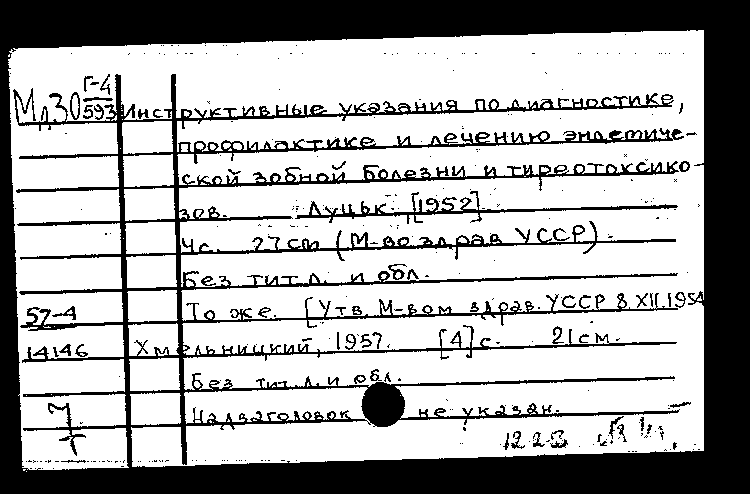 Мд30 Г-4
593 Инструктивные указания по диагностике,
профилактике и лечению эндемиче-
ской зобной болезни и тиреотоксико-
зов. Луцьк. [1952].
4с. 27 cm (М-во здрав УССР).
Без тит.л. и обл.
57-4 То же. [Утв. М-вом здрав. УССР 8.XII.1954
14146 Хмельницкий, 1957. [4]с. 21см.
Без тит.л. и обл.
Надзаголовок не указан.